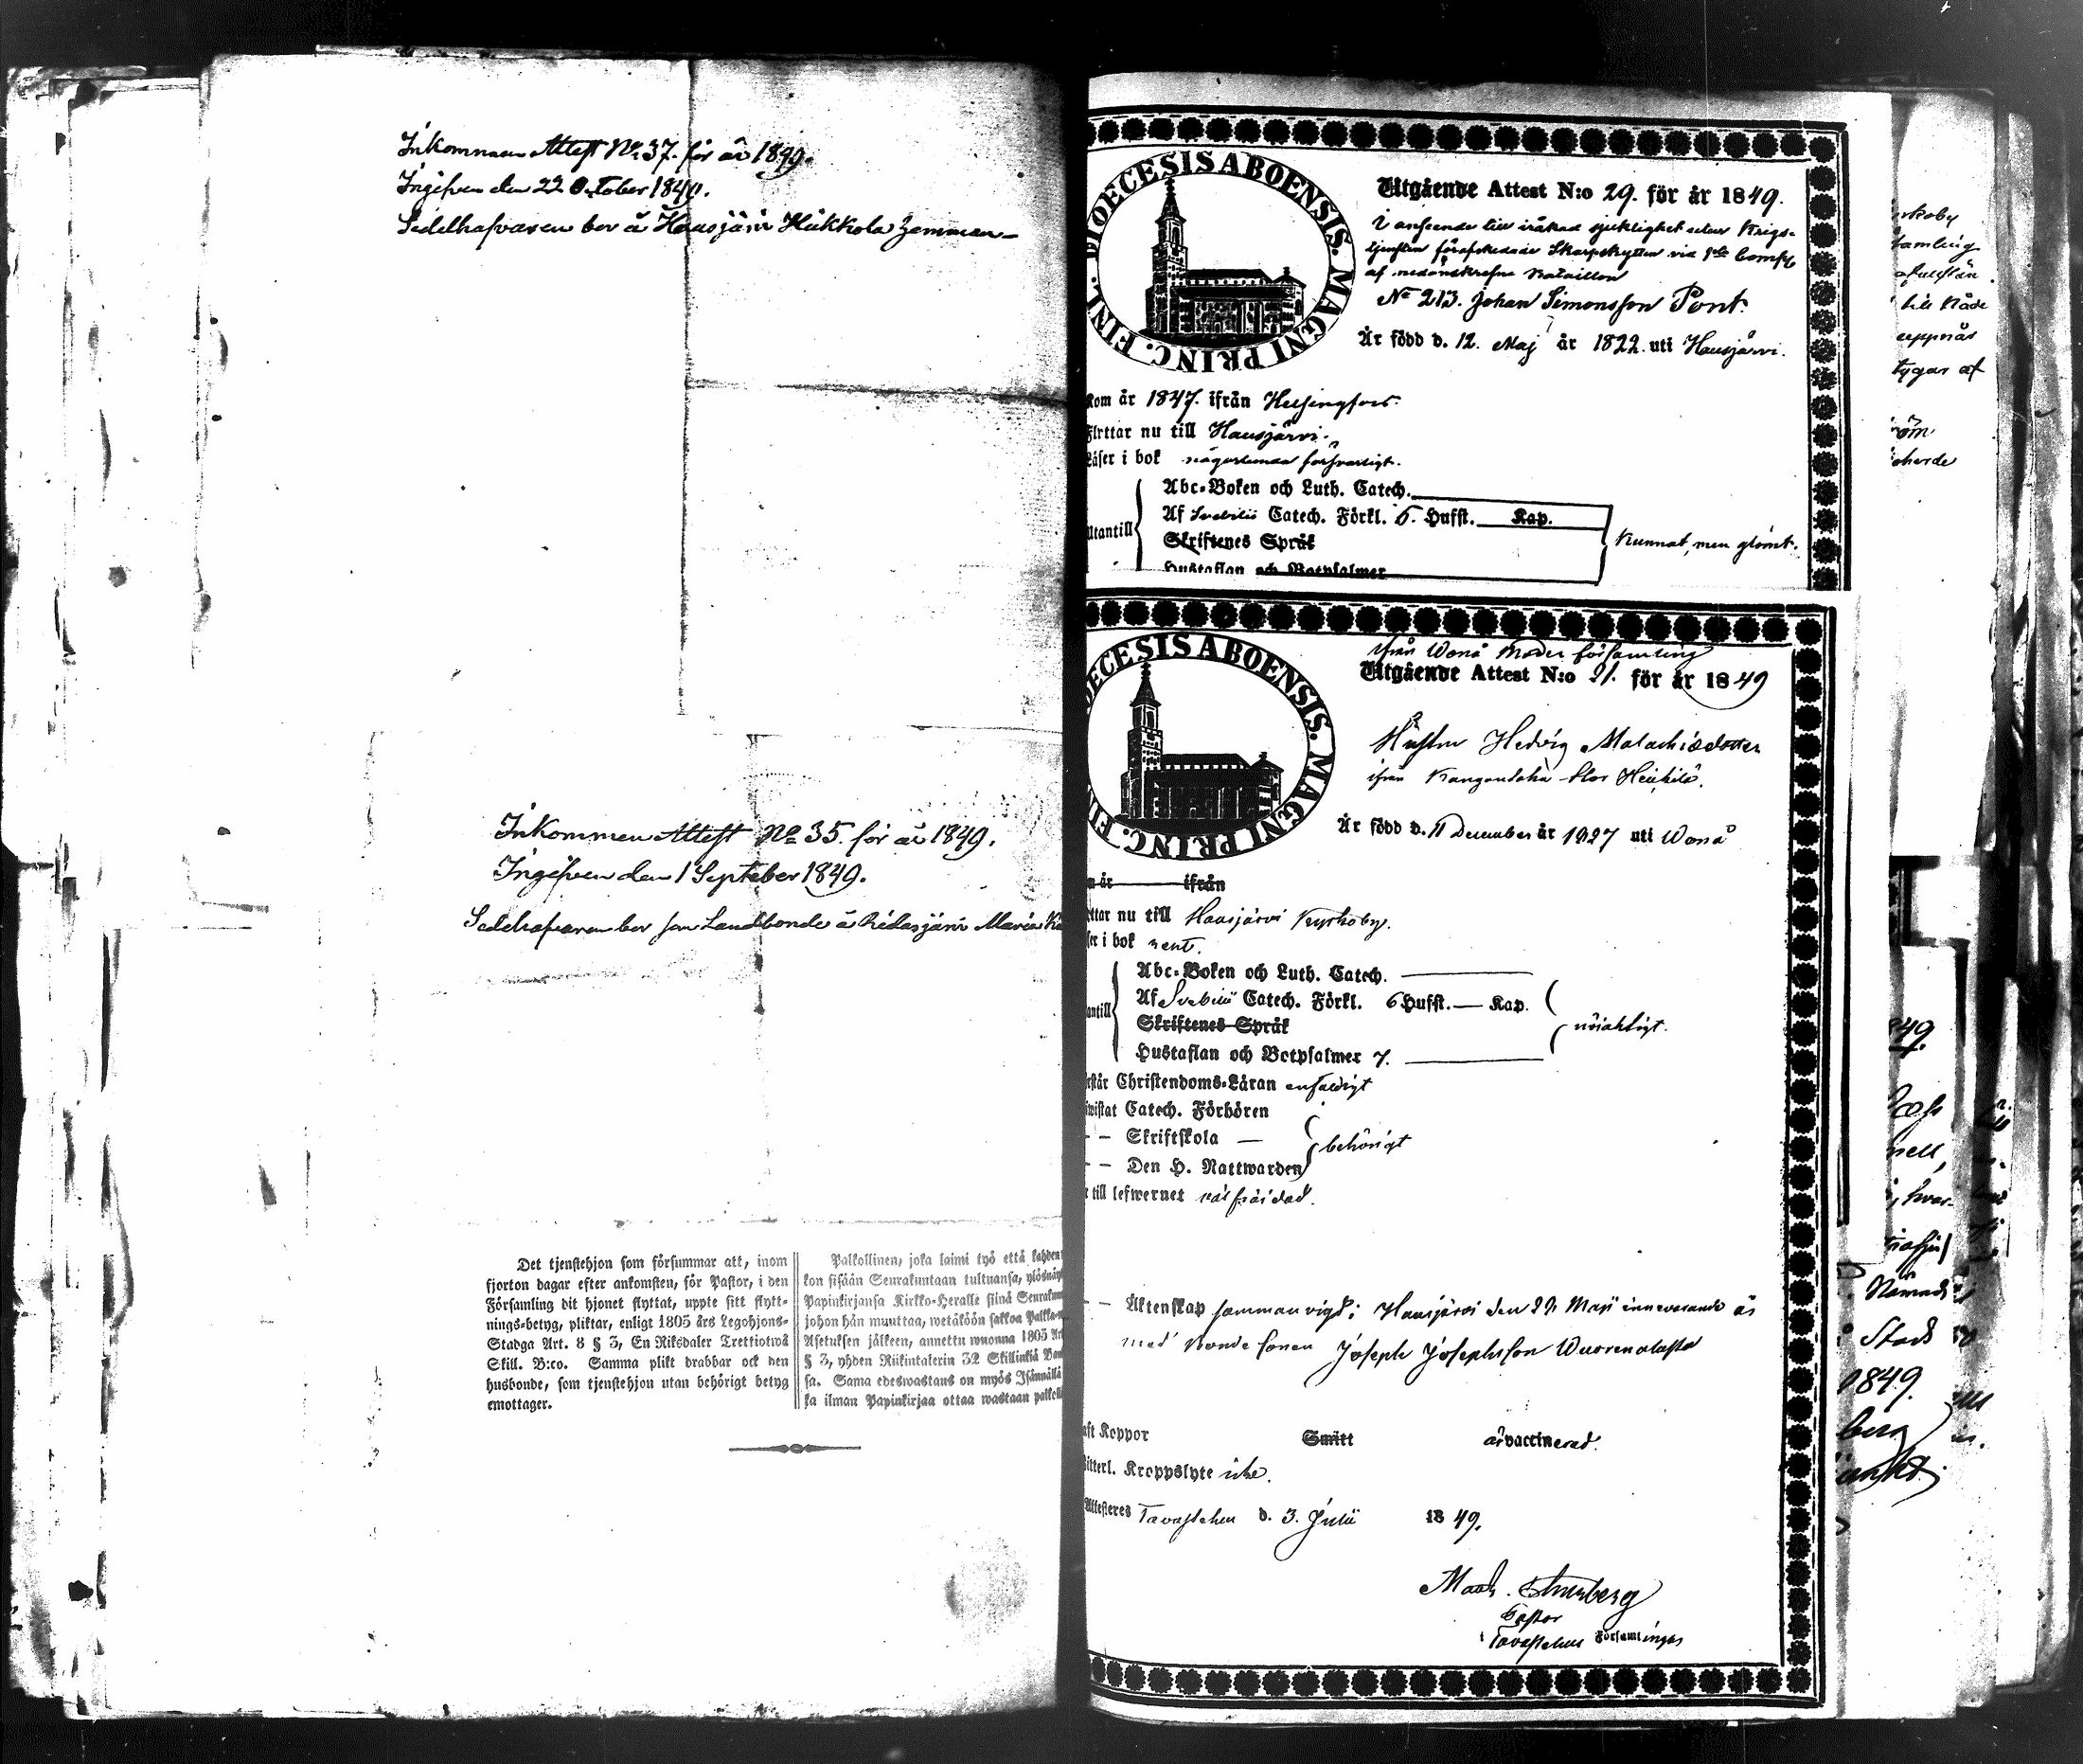 Inkommen Attest No 37. för år 1849.
Ingifven den 22 October 1849.
Sedelhafvaren bor å Hausjärvi Hikkola hemman
Inkommen Attest No 35. för år 1849.
Ingifven den 1 Septeber 1849.
Sedelhafvaren bor som Landbonde å Ridasjärvi Maria
Det tjenstehjon som försummar att, inom
fjorton dagar efter ankomsten, för Pastor, i den
Församling dit hjonet flyttat, uppte sitt flytt-
nings-betyg, pliktar, enligt 1805 års Legohjons-
Stadga Art. 8 § 3, En Riksdaler Trettiotwå
Skill. B:co. Samma plikt drabbar ock den
husbonde, som tjenstehjon utan behörigt betyg
emottager.
Palkollinen, joka laimi lyö että kahden
kon sisään Seurakuntaan tultuansa, ylösnäy
Papinkirjansa Kirkko-Heralle siinä Seurakun
johon hän muuttaa, wetäköön sakkoa Palkka-
Asetuksen jälkeen, annettu wuonna 1805 Art
§ 3, yhden Riikintalerin 32 Skillinkiä Ban
sa. Sama edeswastaus on myös Isännällä
ka ilman Papinkirjaa ottaa wastaan palkolli
DIOECESIS ABOENSIS. MAGNI PRINC. FINL.
Utgående Attest N:o 29. för år 1849.
I anseende till iråkad sjuklighet under Krigs-
tjensten förafskedade Skarpskytten vid 1sta Comp
af nedanskrefne Bataillon
No 213. Johan Simonsson Pont.
Är född d. 12. Maj år 1822. uti Hausjärvi.
Kom år 1847. ifrån Helsingfors.
Flyttar nu till Hausjärvi.
Läser i bok någorlunda försvarligt.
Abc-Boken och Luth. Catech.
Utantill Af Svebilii Catech. Förkl. 6. Hufst. Kap.
Skriftenes Språk
Kunnat, men glömt.
Hustaflan och Botpsalmer
ifrån Wånå Moder församling
DECESIS ABOENSIS. MAGNI PRINC. FI
Utgående Attest N:o 21. för år 1849
Hustru Hedvig Malachiædotter
ifrån Kangandaka Stor Heikkilä.
Är född d. 11 December år 1827 uti Wånå
m år ifrån
ttar nu till Hausjärvi Kyrkoby.
ser i bok rent.
Abc-Boken och Luth. Catech.
antill Af Svebilii Catech. Förkl. 6 Hufst. Kap.
Skriftenes Språk
nöjaktigt.
Hustaflan och Botpsalmer 7.
rstår Christendoms-Läran enfaldigt
iwistat Catech. Förhören
– – Skriftskola —
behörigt
– – Den H. Nattwarden
r till lefwernet väl fräjdad.
– – Äktenskap sammanvigd i Hausjärvi den 29 Maji innevarande år
med Bonde sonen Joseph Josephsson Wuorenalusta
aft Koppor Smitt är vaccinerad.
itterl. Kroppslyte icke.
Attesteres Tavastehus d. 3. Julii 1849.
Mach. Stenberg
Pastor
i Tavastehus Församlingar
rkoby
tamling
till Både
uppnås
tygar af
röm
cherde
849.
nell,
hvar-
Stads
1849.
berg